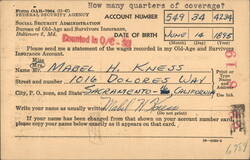 How many quarters of coverage?
Form OAR-7004
FEDERAL SECURITY AGENCY
SOCIAL SECURITY ADMINISTRATION
Bureau of Old-Age and Survivors Insurance
Baltimore 2, Md.
ACCOUNT NUMBER 549 34 4234
DATE OF BIRTH JUNE 14 1895
Please send me a statement of the wages recorded in my Old-Age and Survivors Insurance Account.
MABEL H. KNESS
1016 DOLORES WAY
SACRAMENTO CALIFORNIA
Mabel H. Kness
If your name has been changed from that shown on your account number card, please copy your name below exactly as it appears on that card.